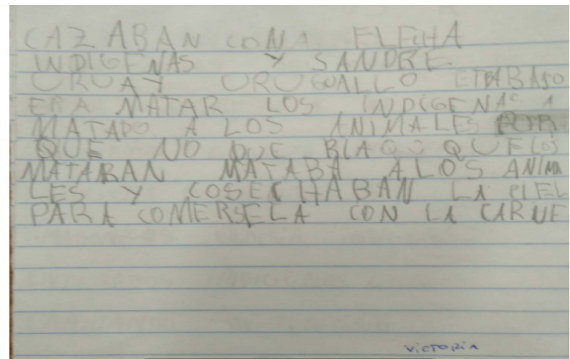 CAZABAN CONA FLECHA
INDIGENAS Y SANDRE
URUAY URUGUALLO ELTRABAJO
ERA MATAR LOS INDIGENAS A
MATADO A LOS ANIMALES POR
QUE NO QUE RIAQU QUELOS
MATARAN MATABA A LOS ANIMA
LES Y COSECHABAN LA PIEL
PARA COMERSELA CON LA CARNE
VICTORIA